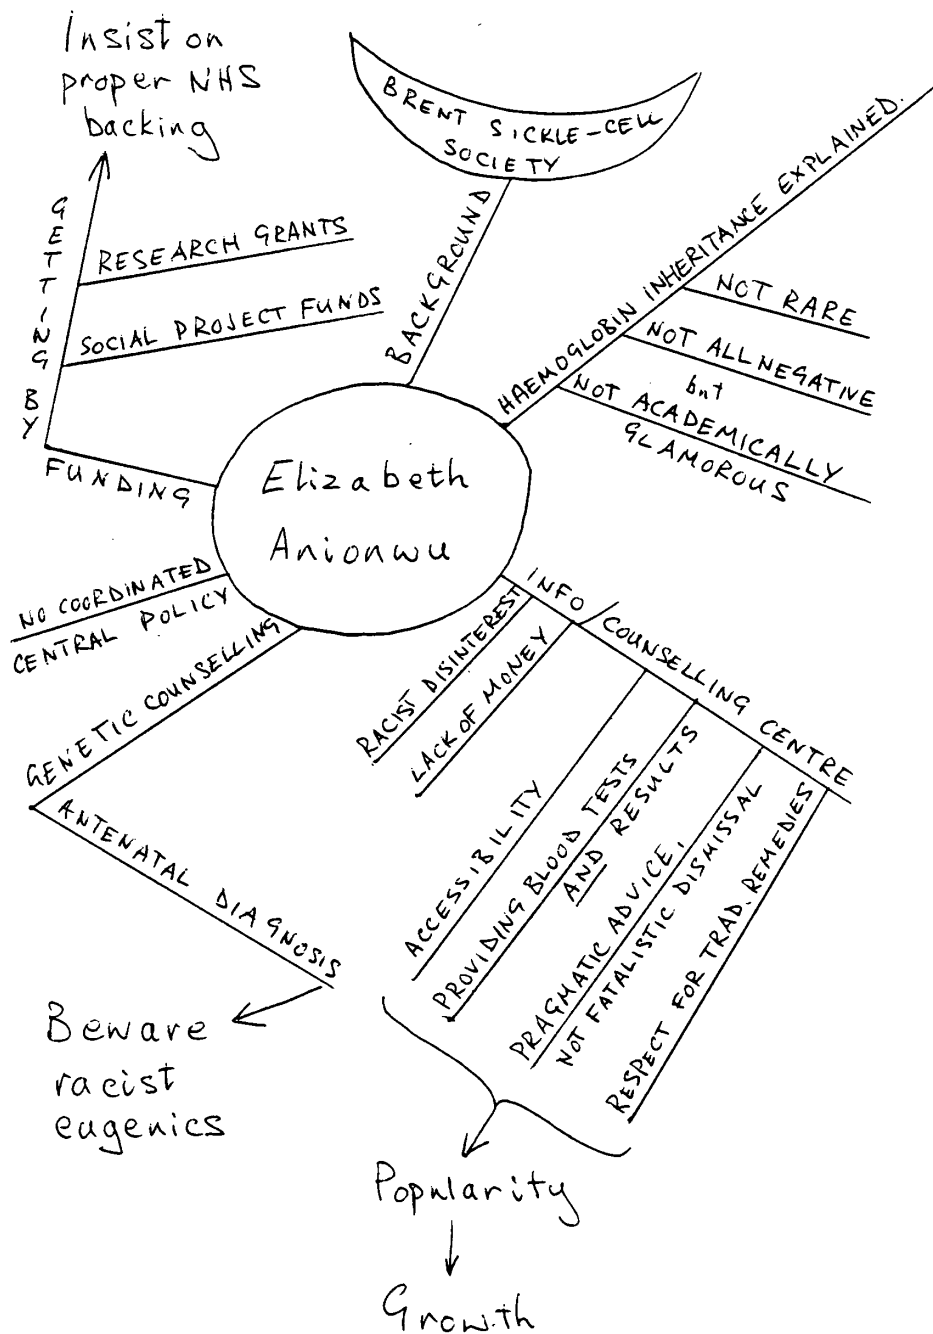 Insist on
proper NHS
backing
GETTING BY
RESEARCH GRANTS
SOCIAL PROJECT FUNDS
FUNDING
BRENT SICKLE-CELL
SOCIETY
BACKGROUND
HAEMOGLOBIN INHERITANCE EXPLAINED.
NOT RARE
NOT ALL NEGATIVE
but
NOT ACADEMICALLY
GLAMOROUS
Elizabeth
Anionwu
NO COORDINATED
CENTRAL POLICY
GENETIC COUNSELLING
ANTENATAL DIAGNOSIS
Beware
racist
eugenics
INFO/COUNSELLING CENTRE
RACIST DISINTEREST
LACK OF MONEY
ACCESSIBILITY
PROVIDING BLOOD TESTS
AND RESULTS
PRAGMATIC ADVICE,
NOT FATALISTIC DISMISSAL
RESPECT FOR TRAD. REMEDIES
Popularity
Growth